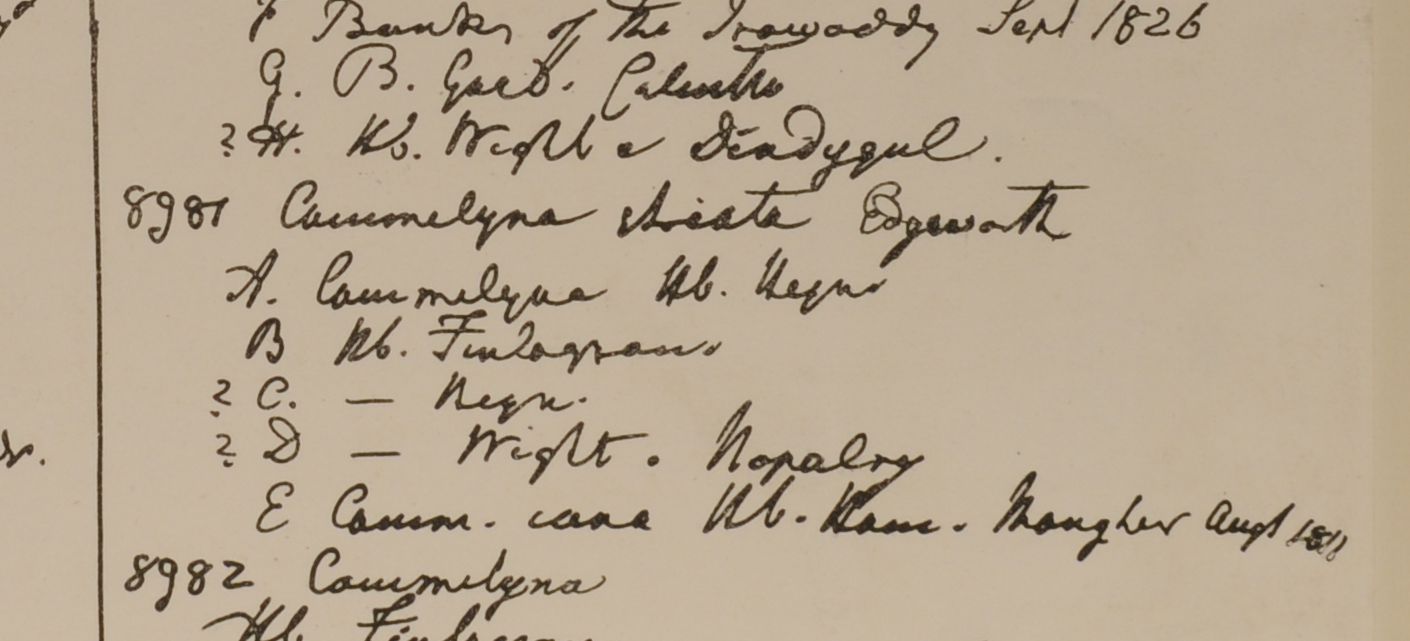 F Banks of the Irawaddy Sept 1826
G. B. Gard. Calcutta
? H. Hb. Wight e Dindygul.
8981 Commelyna striata Edgeworth
A. Commelyna Hb. Heyn.
B Hb. Finlayson.
? C. — Heyn.
? D — Wight. Nopalry
E Comm. cana Hb. Ham. Mongher Augt 1811
8982 Commelyna
Hb. Finlayson